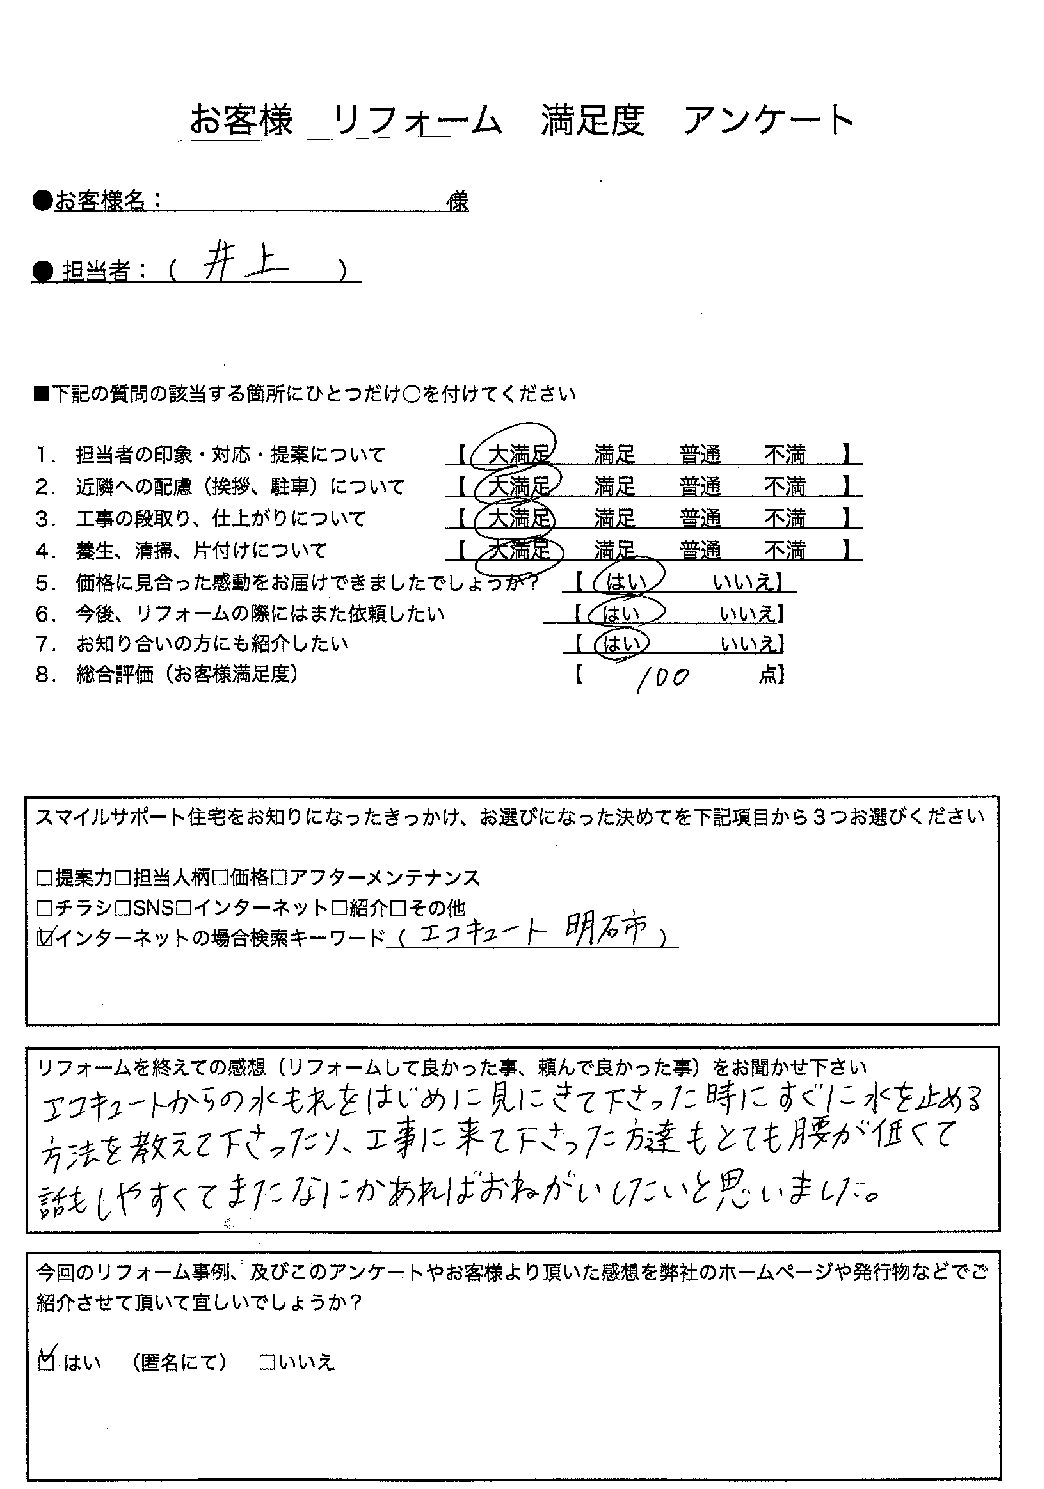 お客様　リフォーム　満足度　アンケート
●お客様名：　　　　　　　　様
●担当者：（ 井上 ）
■下記の質問の該当する箇所にひとつだけ○を付けてください
1. 担当者の印象・対応・提案について　【 大満足　満足　普通　不満 】
2. 近隣への配慮（挨拶、駐車）について　【 大満足　満足　普通　不満 】
3. 工事の段取り、仕上がりについて　【 大満足　満足　普通　不満 】
4. 養生、清掃、片付けについて　【 大満足　満足　普通　不満 】
5. 価格に見合った感動をお届けできましたでしょうか？　【 はい　いいえ】
6. 今後、リフォームの際にはまた依頼したい　【 はい　いいえ】
7. お知り合いの方にも紹介したい　【 はい　いいえ】
8. 総合評価（お客様満足度）　【 100 点】
スマイルサポート住宅をお知りになったきっかけ、お選びになった決めてを下記項目から３つお選びください
□提案力□担当人柄□価格□アフターメンテナンス
□チラシ□SNS□インターネット□紹介□その他
☑インターネットの場合検索キーワード（ エコキュート 明石市 ）
リフォームを終えての感想（リフォームして良かった事、頼んで良かった事）をお聞かせ下さい
エコキュートからの水もれをはじめに見にきて下さった時にすぐに水を止める
方法を教えて下さったり、工事に来て下さった方達もとても腰が低くて
話もしやすくてまたなにかあればおねがいしたいと思いました。
今回のリフォーム事例、及びこのアンケートやお客様より頂いた感想を弊社のホームページや発行物などでご
紹介させて頂いて宜しいでしょうか？
☑はい　（匿名にて）　□いいえ